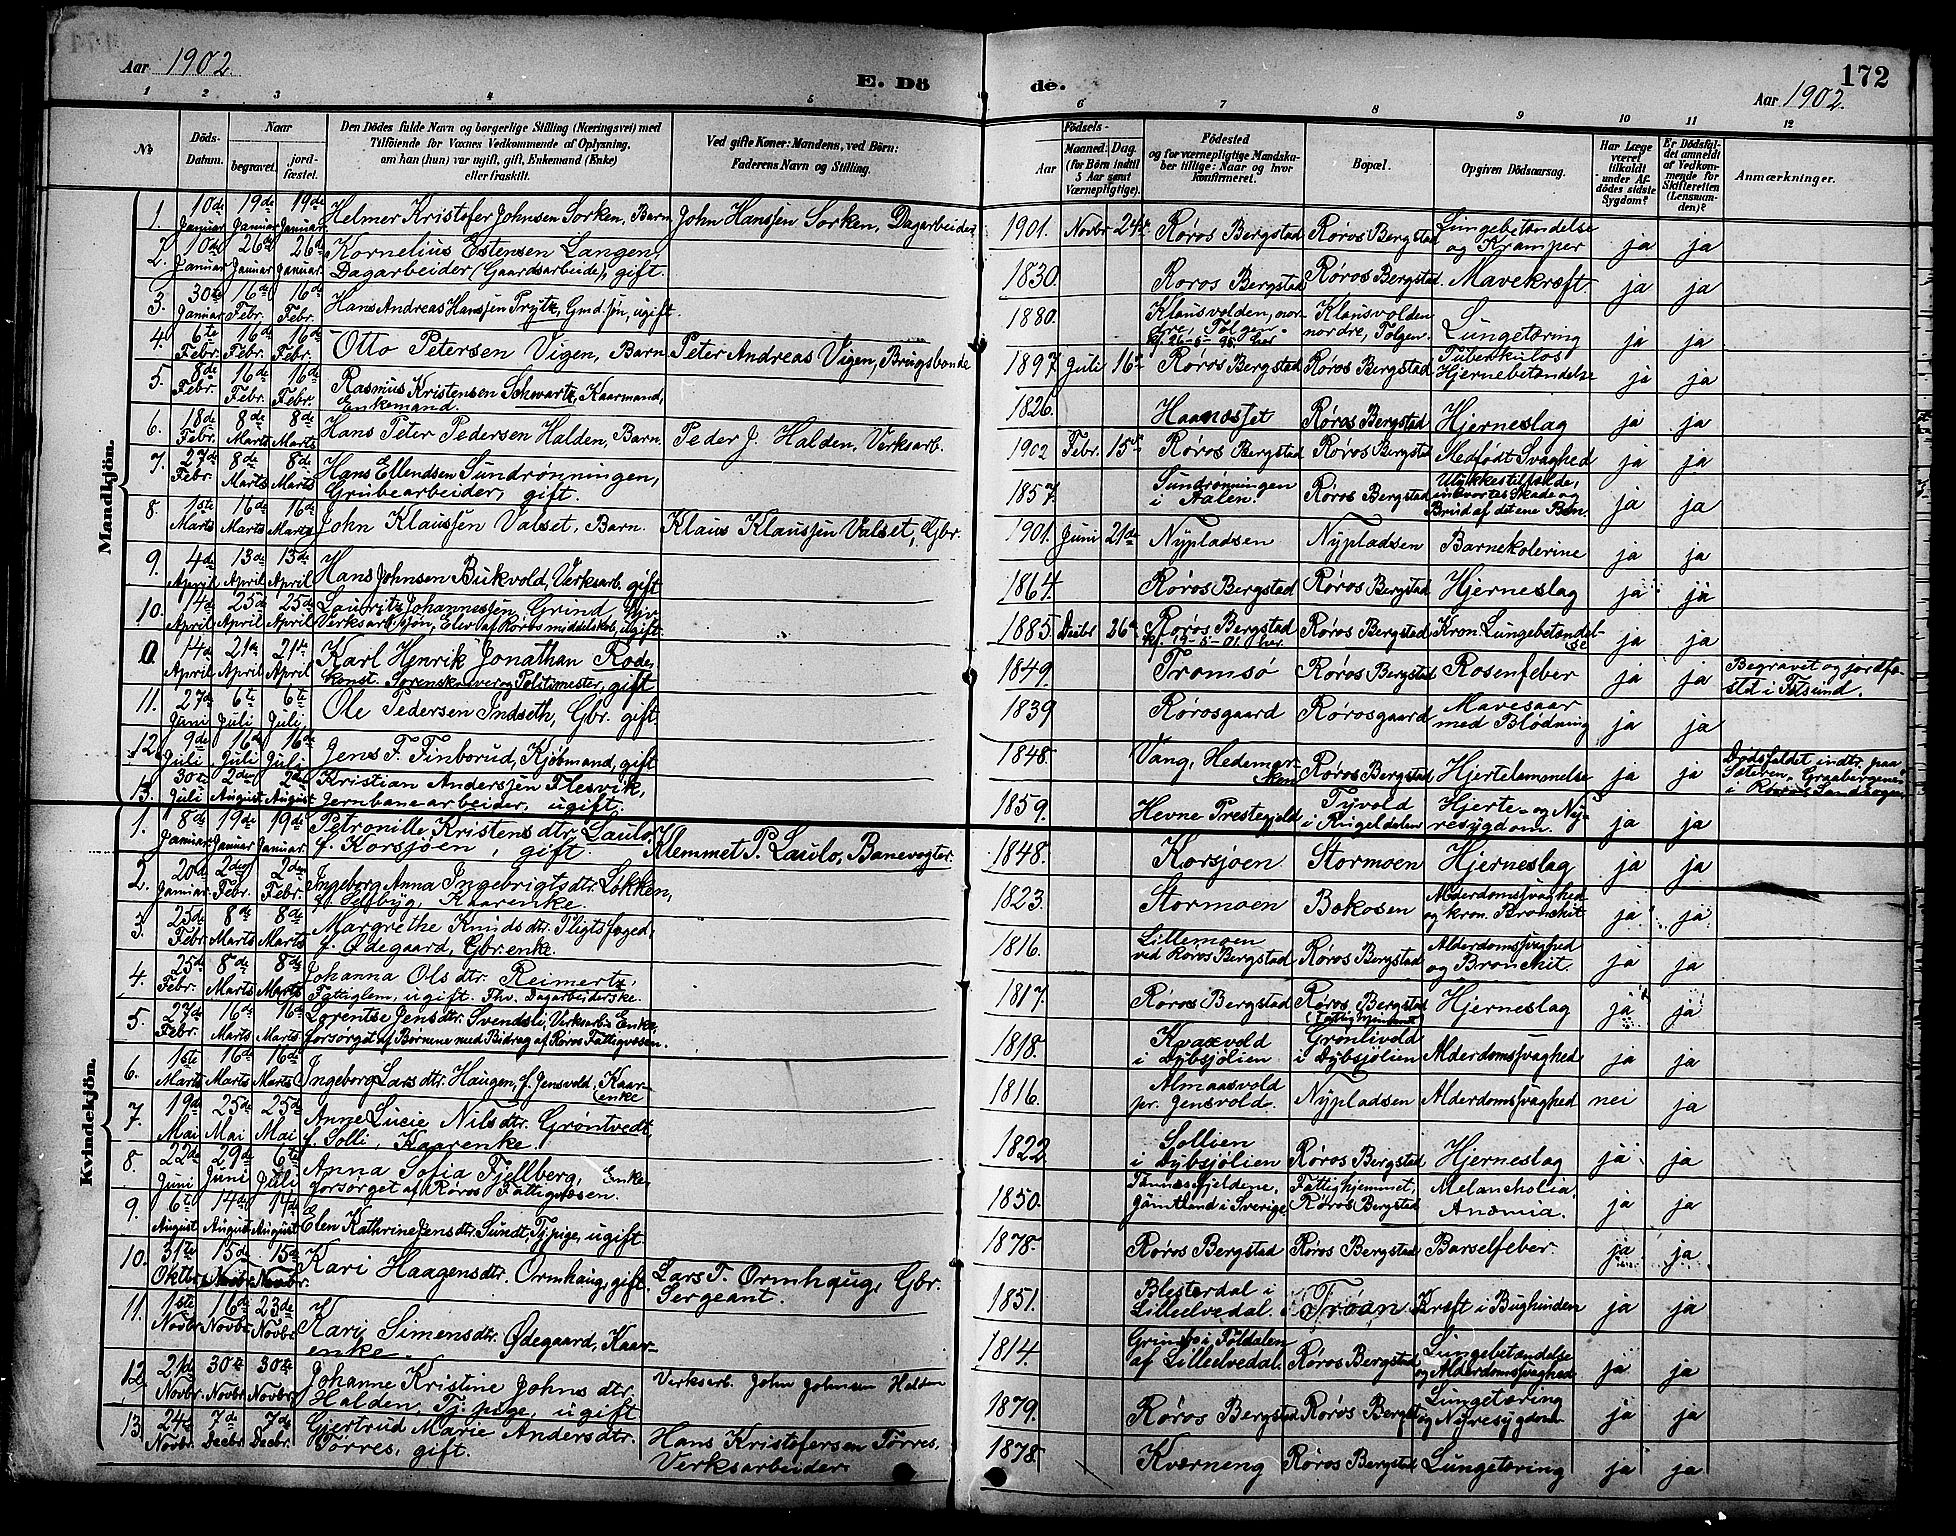 172
Aar 1902.
E. Dö
de.
Aar 1902.
1 2 3 4 5 6 7 8 9 10 11 12
No.
Döds-Datum.
Naar
begravet.
jordfæstet.
Den Dödes fulde Navn og borgerlige Stilling (Næringsvei) med
Tilföiende for Voxnes Vedkommende af Oplysning,
om han (hun) var ugift, gift, Enkemand (Enke)
eller fraskilt.
Ved gifte Koner: Mandens, ved Börn:
Faderens Navn og Stilling.
Födsels-
Aar
Maaned. Dag.
(for Börn indtil
5 Aar samt
Værnepligtige).
Födested
og for værnepligtige Mandska-
ber tillige: Naar og hvor
konfirmeret.
Bopæl.
Opgiven Dödsaarsag.
Har Læge
været
tilkaldt
under Af-
dödes sidste
Sygdom?
Er Dödsfal-
det anmeldt
af Vedkom-
mende for
Skifteretten
(Lensman-
den)?
Anmærkninger.
Mandkjön.
1. 10de Januar 19de Januar 19de Januar Helmer Kristofer Johnsen Sorken, Barn John Hanssen Sorken, Dagarbeider 1901. Novbr 24de Røros Bergstad Røros Bergstad Lungebetændelse og Kramper ja ja
2. 10de Januar 26de Januar 26de Januar Kornelius Estensen Langen, Dagarbeider (Gaardsarbeide), gift. 1830. Røros Bergstad Røros Bergstad. Mavekræft. ja ja
3. 30te Januar 16de Febr. 16de Febr. Hans Andreas Hanssen Prytz, Gmd.søn, ugift. 1880. Klausvolden, nordre, Tolgen. Klausvolden nordre, Tolgen. Lungetæring ja ja
4. 6te Febr. 16de Febr. 16de Febr. Otto Petersen Vigen, Barn Peter Andreas Vigen, Brugsbonde 1897 Juli 16de Røros Bergstad Røros Bergstad Tuberkuløs Hjernebetændelse ja ja
5. 8de Febr. 16de Febr. 16de Febr. Rasmus Kristensen Schwartz, Kaarmand, Enkemand. 1826. Haanæsset Røros Bergstad Hjerneslag ja ja
6. 18de Febr. 8de Marts 8de Marts Hans Peter Pedersen Halden, Barn. Peder J. Halden, Verksarb. 1902 Febr. 15de Røros Bergstad Røros Bergstad Medfødt Svaghed ja ja
7. 27de Febr. 8de Marts 8de Marts Hans Ellendsen Sundrønningen, Grubearbeider, gift. 1857. Sundrønningen i Aalen. Røros Bergstad Ulykkestilfælde, indvortes Skade og Brud af det ene Ben. ja ja
8. 1ste Marts 16de Marts 16de Marts John Klaussen Valset, Barn. Klaus Klaussen Valset, Gbr. 1901. Juni 21de Nypladsen Nypladsen Barnekolerine ja ja
9. 4de April 13de April 13de April Hans Johnsen Bukvold, Verksarb. gift 1864. Røros Bergstad Røros Bergstad Hjerneslag ja ja
10. 14de April 25de April 25de April Lauritz Johannessen Grind, Elev af Røros middelskole, ugift. 1885. Decbr 26de Røros Bergstad Røros Bergstad Kron. Lungebetændelse ja ja
0. 14de April 21de April 21de April Karl Henrik Jonathan Rode, konst. Sorenskriver og Politimester, gift 1849. Tromsø Røros Bergstad Rosenfeber ja ja Begravet og jordfæstet i
11. 27de Juni 6te Juli 6te Juli Ole Pedersen Indseth, Gbr. gift. 1839 Rørosgaard Rørosgaard Mavesaar med Blødning ja ja
12. 9de Juli 16de Juli 16de Juli Jens F. Finborud, Kjøbmand, gift 1848. Vang, Hedemarken Røros Bergstad Hjertelammelse ja ja Dødsfaldet indtr. paa Sæteren, Graabergene i Røros Landsogn
13. 30te Juli 2den August 2den August Kristian Anderssen Flesvik, Jernbanearbeider, ugift. 1859. Hevne Prestegjeld Tyvold i Singsdalen Hjerte- og Nyresygdom. ja ja
Kvindekjön.
1. 8de Januar 19de Januar 19de Januar Petronille Kristensdtr. Laulo, f. Korsjøen, gift. Klemmet P. Laulo, Banevogter. 1848. Korsjøen Stormoen Hjerneslag ja ja
2. 20de Januar 2den Febr. 2den Febr. Ingeborg Anna Ingebrigtsdtr. Løkken, f. Selbyg, Kaarenke. 1823. Stormoen Bokosen Alderdomssvaghed og kron. Bronchit ja ja
3. 25de Febr. 8de Marts 8de Marts Margrethe Knudsdtr. Pligtsfoged, f. Ødegaard, Gbr.enke. 1816. Lillemoen ved Røros Bergstad Røros Bergstad Alderdomssvaghed og Bronchit. ja ja
4. 25de Febr. 8de Marts 8de Marts Johanna Olsdtr. Reimertz, Fattiglem, ugift. Fhv. Dagarbeiderske. 1817. Røros Bergstad Røros Bergstad (Fattighjemmet) Hjerneslag ja ja
5. 27de Febr. 16de Marts 16de Marts Lorentse Jensdtr. Svendsli, Verksarb. Enke, forsørget af Børnene med Bidrag af Røros Fattigvæsen. 1818. Kvaxvold i Dybsjølien Grønlivold i Dybsjølien Alderdomssvaghed ja ja
6. 1ste Marts 16de Marts 16de Marts Ingeborg Larsdtr. Haugen, f. Jensvold, Kaarenke 1816. Almaasvold pr. Jensvold. Nypladsen Alderdomssvaghed nei ja
7. 19de Mai 25de Mai 25de Mai Anne Lucie Nilsdtr. Grøntvedt, f. Solli, Kaarenke. 1822 Sollien i Dybsjølien Røros Bergstad Hjerneslag ja ja
8. 22de Juni 29de Juni 6te Juli Anna Sofia Fjellberg, Enke, forsørget af Røros Fattigvæsen. 1850. Tännäsfjeldene, Jämtland i Sverige. Fattighjemmet, Røros Bergstad Melancholia. Anæmia. ja ja
9. 6te August 14de August 14de August Elen Kathrine Jensdtr. Sundt, Tj.pige, ugift 1878. Røros Bergstad Røros Bergstad Barselfeber. ja ja
10. 31te Oktbr. 15de Novbr. 15de Novbr. Kari Haagensdtr. Ormhaug, gift. Lars T. Ormhaug, Gbr. Sergeant. 1851. Blesterdal i Lilleelvedal. Trøan Kræft i Bughinden ja ja
11. 1ste Novbr 16de Novbr. 23de Novbr. Kari Simensdtr. Ødegaard, Kaarenke. 1814. Foldalen af Lilleelvedal. Røros Bergstad Lungebetændelse og Alderdomssvaghed ja ja
12. 21de Novbr. 30te Novbr. 30te Novbr. Johanne Kristine Johnsdtr. Halden, Tj.pige, ugift Verksarb. John Johnsen Halden 1879. Røros Bergstad Røros Bergst. Lungetæring og Nyresygdom ja ja
13. 24de Novbr. 7de Decbr. 7de Decbr. Gjertrud Marie Andersdtr. Tørres, gift. Hans Kristofersen Tørres, Verksarbeider 1878. Kværneng Røros Bergstad Lungetæring ja ja